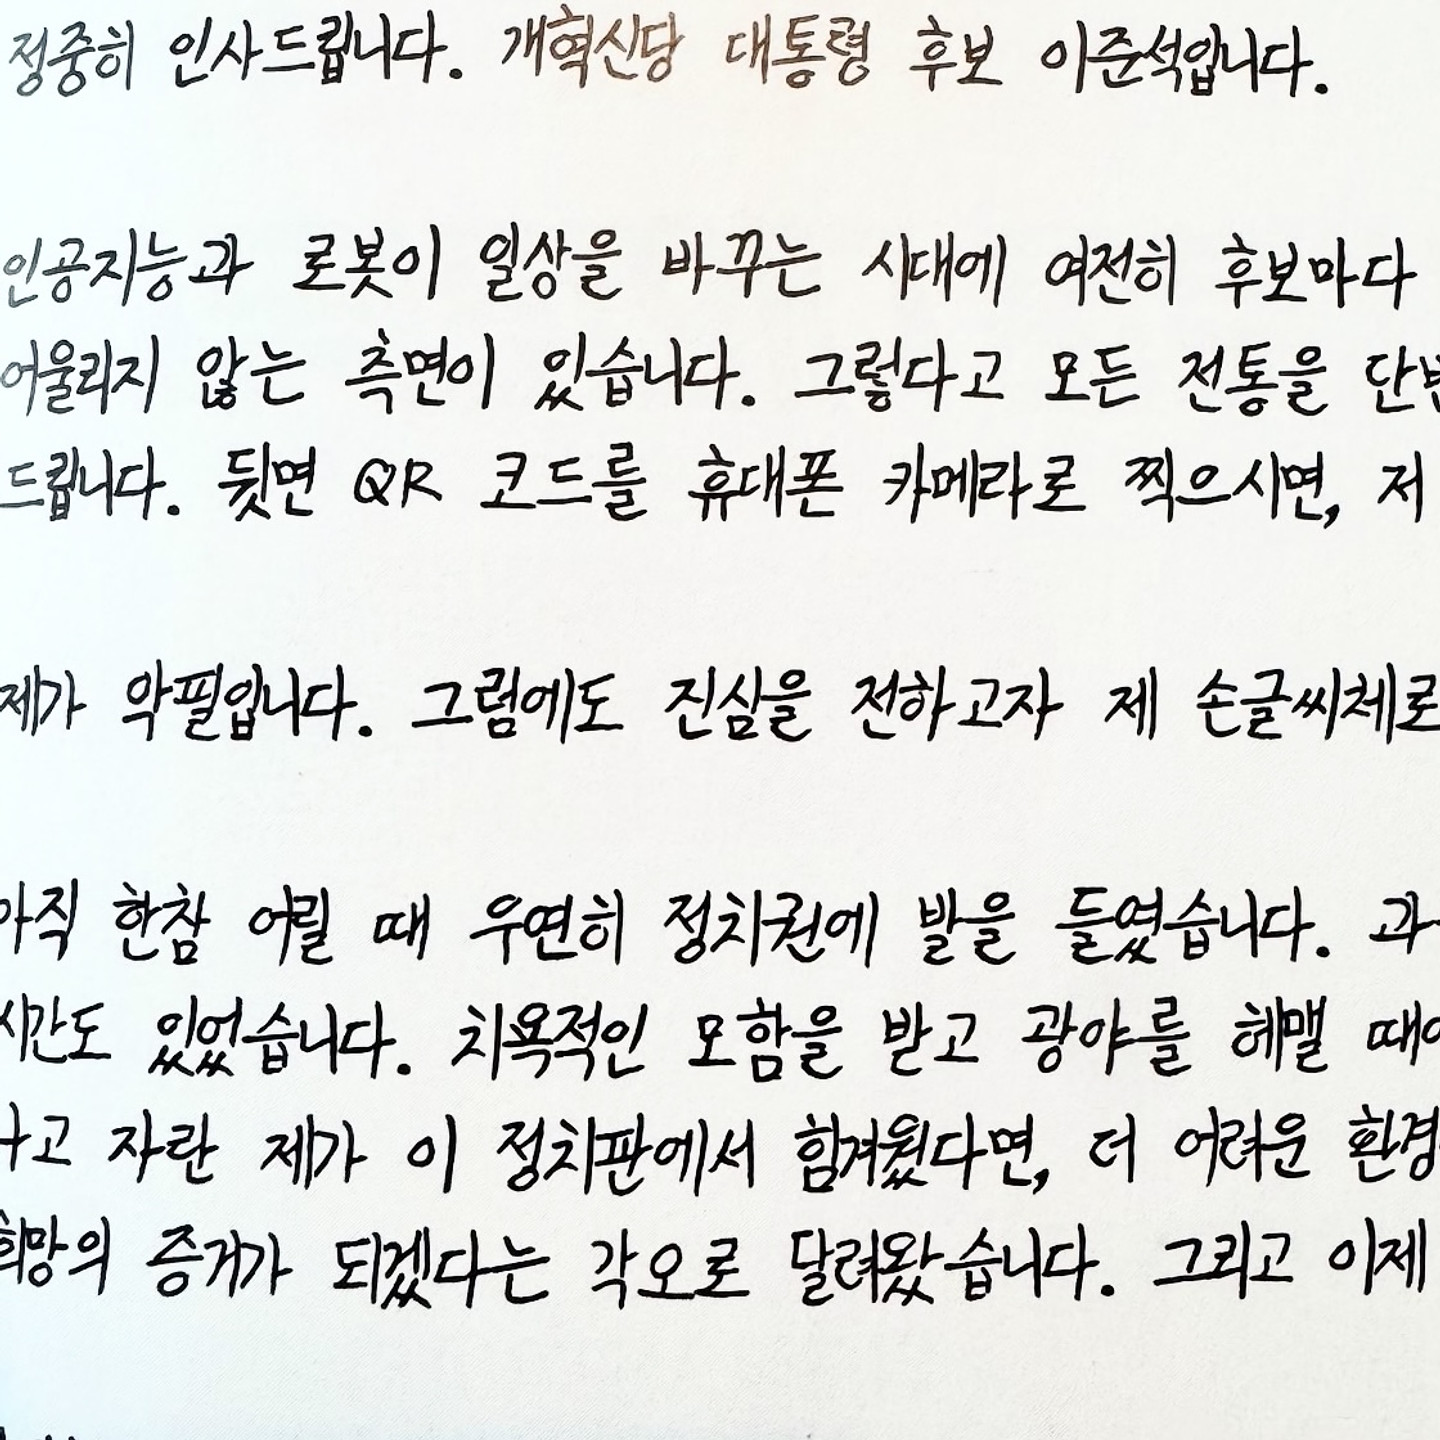 정중히 인사드립니다. 개혁신당 대통령 후보 이준석입니다.
인공지능과 로봇이 일상을 바꾸는 시대에 여전히 후보마다
어울리지 않는 측면이 있습니다. 그렇다고 모든 전통을
드립니다. 뒷면 QR 코드를 휴대폰 카메라로 찍으시면, 저
제가 악필입니다. 그럼에도 진심을 전하고자 제 손글씨체로
아직 한참 어릴 때 우연히 정치권에 발을 들였습니다.
시간도 있었습니다. 치욕적인 모함을 받고 광야를 헤맬
자란 제가 이 정치판에서 힘겨웠다면, 더 어려운 환경
희망의 증거가 되겠다는 각오로 달려왔습니다. 그리고 이제